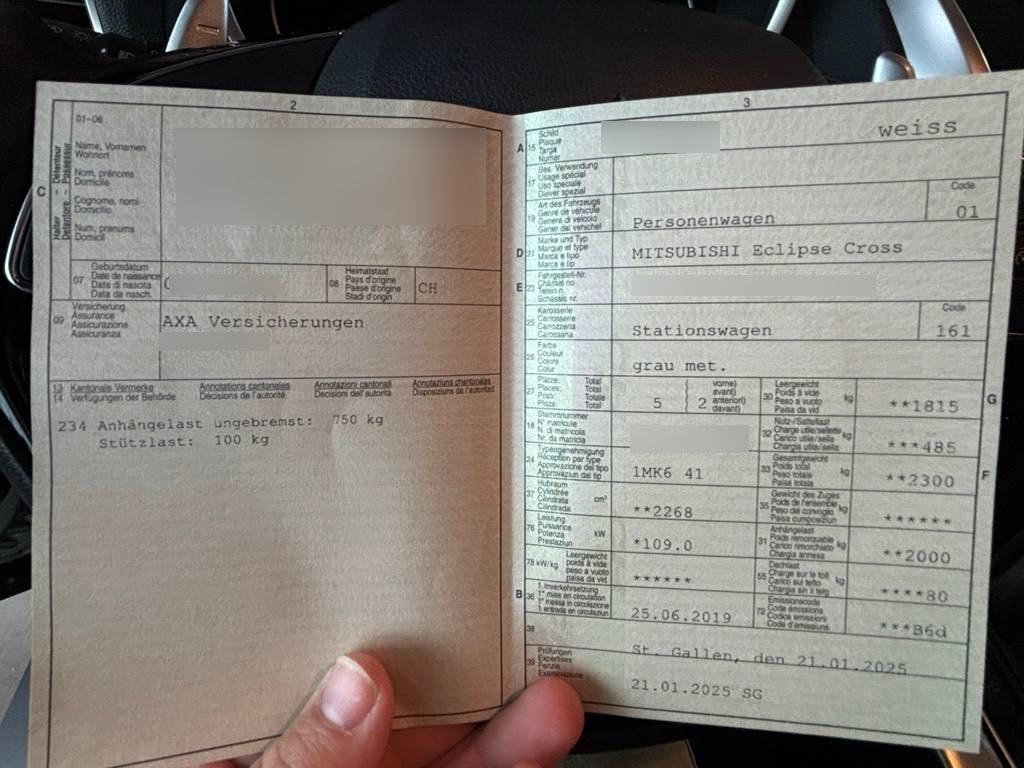 2
01-06
Halter Détenteur
Detentore Possessur
C
Name, Vornamen
Wohnort
Nom, prénoms
Domicile
Cognome, nomi
Domicilio
Num, prenums
Domicil
07
Geburtsdatum
Date de naissance
Data di nascita
Data da nasch.
08
Heimatstaat
Pays d'origine
Paese d'origine
Stadi d'origin
CH
09
Versicherung
Assurance
Assicurazione
Assicuranza
AXA Versicherungen
13 Kantonale Vermerke Annotations cantonales Annotazioni cantonali Annotaziuns chantunalas
14 Verfügungen der Behörde Décisions de l'autorité Decisioni dell'autorità Disposiziuns da l'autoritad
234 Anhängelast ungebremst: 750 kg
Stützlast: 100 kg
3
A 15
Schild
Plaque
Targa
Numer
weiss
17
Bes. Verwendung
Usage spécial
Uso speciale
Diever spezial
19
Art des Fahrzeugs
Genre de véhicule
Genere di veicolo
Gener dal vehichel
Personenwagen
Code
01
D 21
Marke und Typ
Marque et type
Marca e tipo
Marca e tip
MITSUBISHI Eclipse Cross
E 23
Fahrgestell-Nr.
Châssis no
Telaio n.
Schassis nr.
25
Karosserie
Carrosserie
Carrozzeria
Carossaria
Stationswagen
Code
161
26
Farbe
Couleur
Colore
Colur
grau met.
27
Plätze: Total
Places: Total
Posti: Totale
Plazs: Total
5 { 2
vorne)
avant)
anteriori)
davant)
30
Leergewicht
Poids à vide
Peso a vuoto
Paisa da vid
kg
**1815
G
18
Stammnummer
N° matricule
N. di matricola
Nr. da matricla
32
Nutz-/Sattellast
Charge utile/sellette
Carico utile/sella
Chargia utila/sella
kg
***485
24
Typengenehmigung
Réception par type
Approvazione del tipo
Approvaziun dal tip
1MK6 41
33
Gesamtgewicht
Poids total
Peso totale
Paisa totala
kg
**2300
F
37
Hubraum
Cylindrée
Cilindrata
Cilindrada
cm³
**2268
35
Gewicht des Zuges
Poids de l'ensemble
Peso del convoglio
Paisa cumposiziun
kg
******
76
Leistung
Puissance
Potenza
Prestaziun
kW
*109.0
31
Anhängelast
Poids remorquable
Carico rimorchiato
Chargia annexa
kg
**2000
78 kW/kg
Leergewicht
poids à vide
peso a vuoto
paisa da vid
******
55
Dachlast
Charge sur le toit
Carico sul tetto
Chargia sin il tetg
kg
****80
B 36
1. Inverkehrsetzung
1re mise en circulation
1a messa in circolazione
1. entrada en circulaziun
25.06.2019
72
Emissionscode
Code émissions
Codice emissioni
Code d'emissiuns
***B6d
38
St. Gallen, den 21.01.2025
39
Prüfungen
Expertises
Perizie
Examinaziuns
21.01.2025 SG